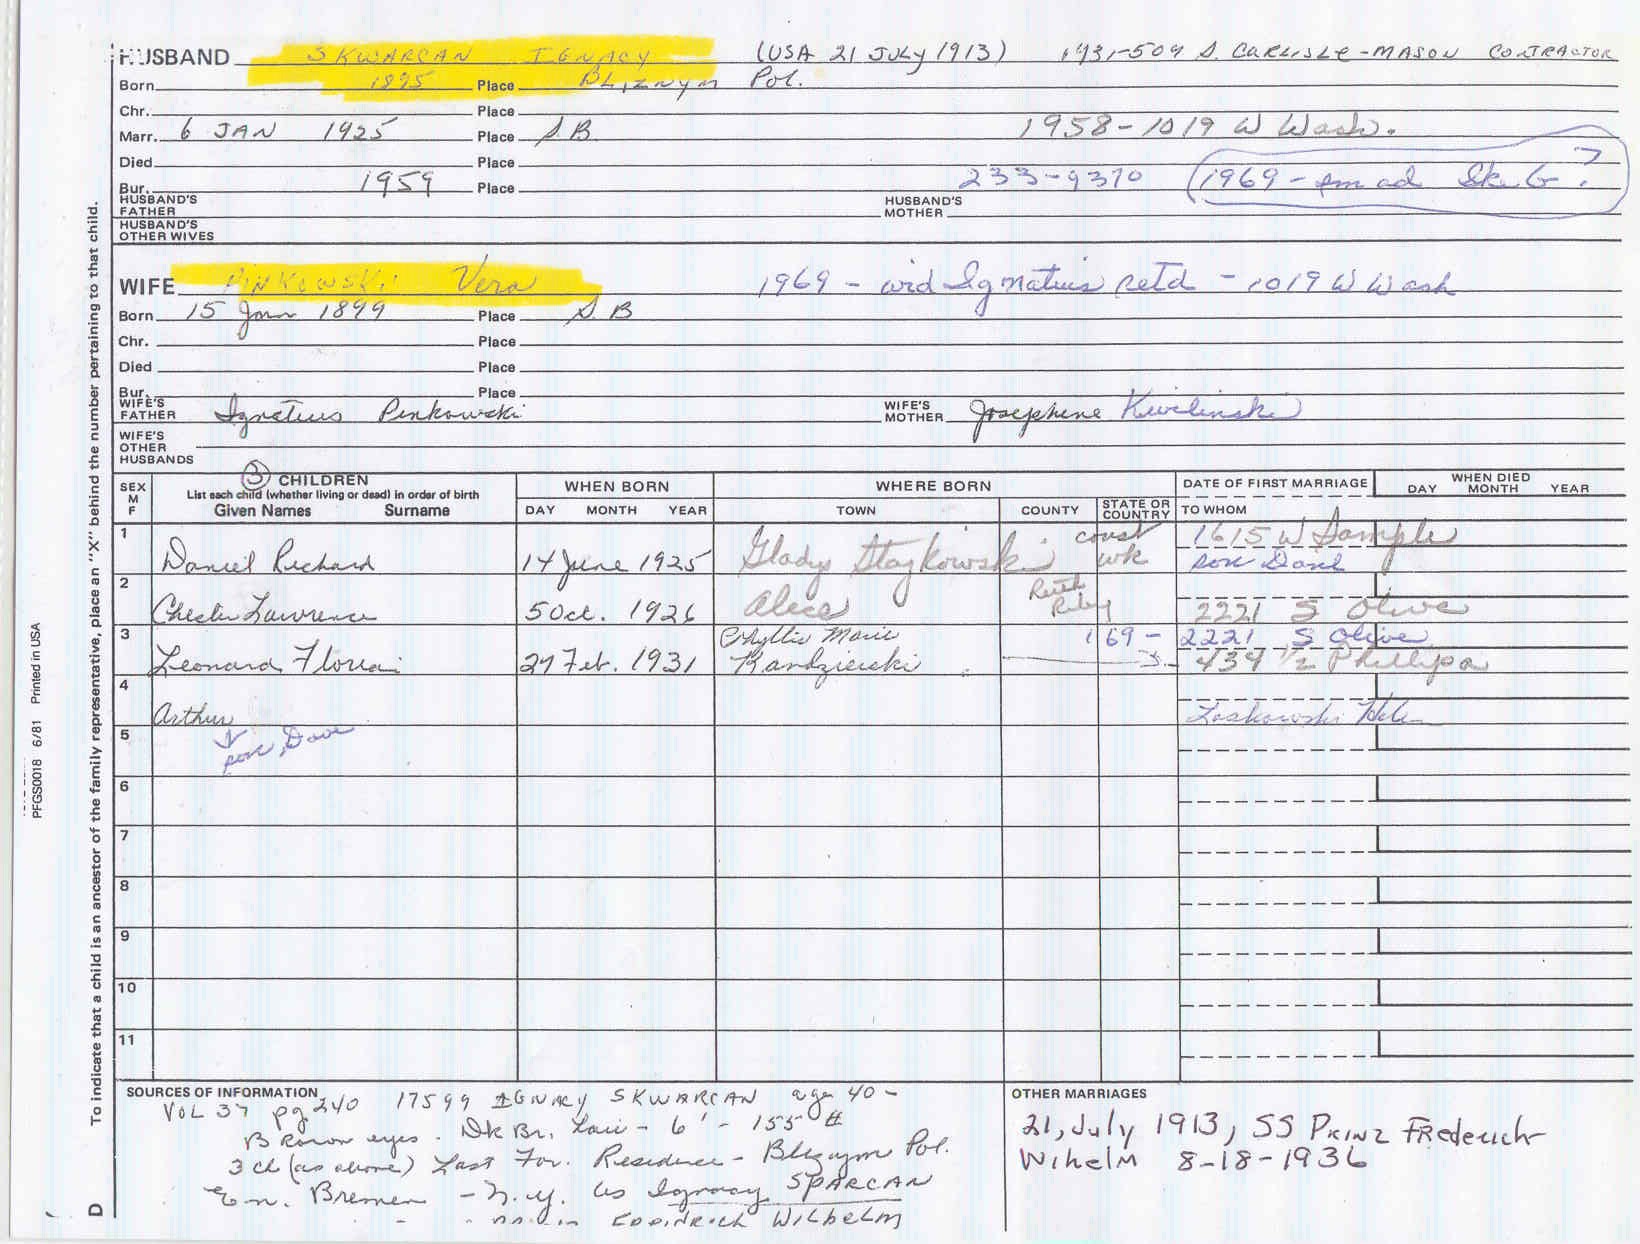 HUSBAND SKWARCAN IGNACY (USA 21 JULY 1913) 1931-509 S. CARLISLE - MASON CONTRACTOR
Born 1895 Place Bliznym Pol.
Chr. Place
Marr. 6 JAN 1925 Place S.B. 1958 - 1019 W Wash.
Died Place
Bur. 1959 Place 233-9370 (1969 -
HUSBAND'S FATHER HUSBAND'S MOTHER
HUSBAND'S OTHER WIVES
WIFE PINKOWSKI Vera 1969 - wid Ignatius retd - 1019 W Wash
Born 15 Jan 1899 Place S.B
Chr. Place
Died Place
Bur. Place
WIFE'S FATHER Ignatius Pinkowski WIFE'S MOTHER Josephine Kwilinski
WIFE'S OTHER HUSBANDS
SEX M F
③ CHILDREN
List each child (whether living or dead) in order of birth
Given Names Surname
WHEN BORN
DAY MONTH YEAR
WHERE BORN
TOWN COUNTY STATE OR COUNTRY
DATE OF FIRST MARRIAGE
TO WHOM
WHEN DIED
DAY MONTH YEAR
1 Daniel Richard 14 June 1925 Gladys const wk 1615 W Sample
son Dave
2 Chester Lawrence 5 Oct. 1926 Alice Ruth Riley 2221 S Olive
3 Leonard Florian 27 Feb. 1931 Phyllis Marie Kandzierski 169 - 2221 S Olive
439 1/2 Phillipa
4 Arthur Laskowski
son, Dave
5
6
7
8
9
10
11
SOURCES OF INFORMATION
VOL 37 pg 240 17599 IGNACY SKWARCAN age 40 -
Brown eyes. Dk Br. hair - 6' - 155 #
3 ch (as above) Last For. Residence - Pol.
Em. Bremen - N.Y. as Ignacy SPARCAN
WILHELM
OTHER MARRIAGES
21, July 1913, SS PRINZ FREDERICH
WIHELM 8-18-1936
To indicate that a child is an ancestor of the family representative, place an "X" behind the number pertaining to that child.
PFGS0018 6/81 Printed in USA
D